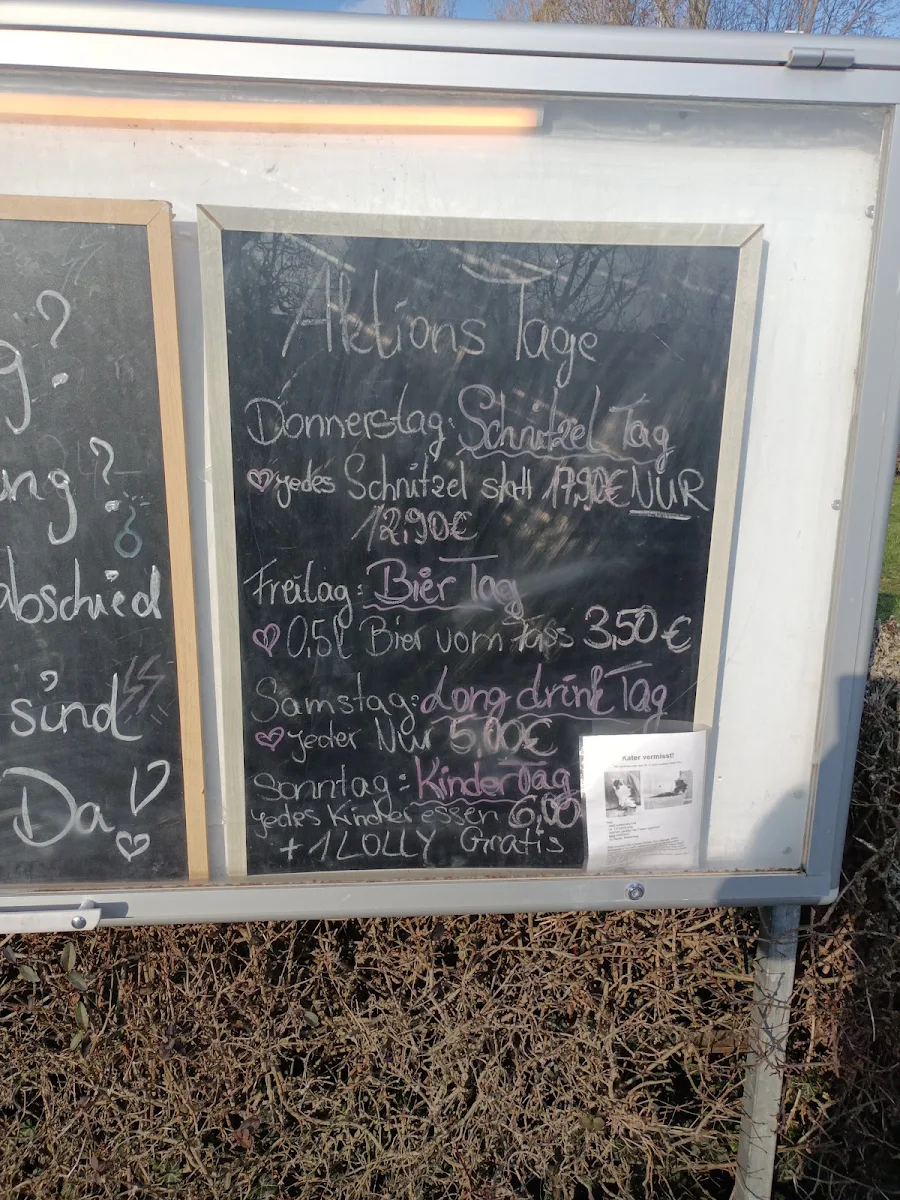 g?
ung?
abschied
sind
Da
Aktions Tage
Donnerstag: Schnitzel Tag
jedes Schnitzel statt 17,90€ NUR
12,90€
Freitag: Bier Tag
0,5l Bier vom Fass 3,50€
Samstag: Long drink Tag
jeder Nur 5,00€
Sonntag: Kinder Tag
jedes Kinder essen 6,00
+ 1 LOLLY Gratis
Kater vermisst!